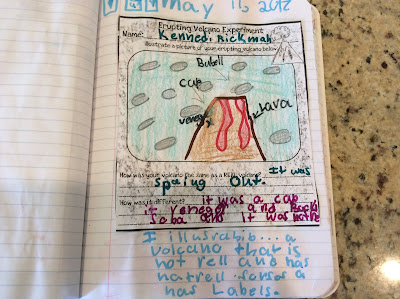 May 11, 2012
Erupting Volcano Experiment
Name: Kennedi Rickman
Illustrate a picture of your erupting volcano below
Bubell
cup
Lava
How was your volcano the same as a REAL volcano?
It was
Spaing Out.
How was it different? It was a cup
if veneger and Backi
Soba and it was
I illusrabib... a
volcano that is
not rell and has
natrell forses a
has Labels.